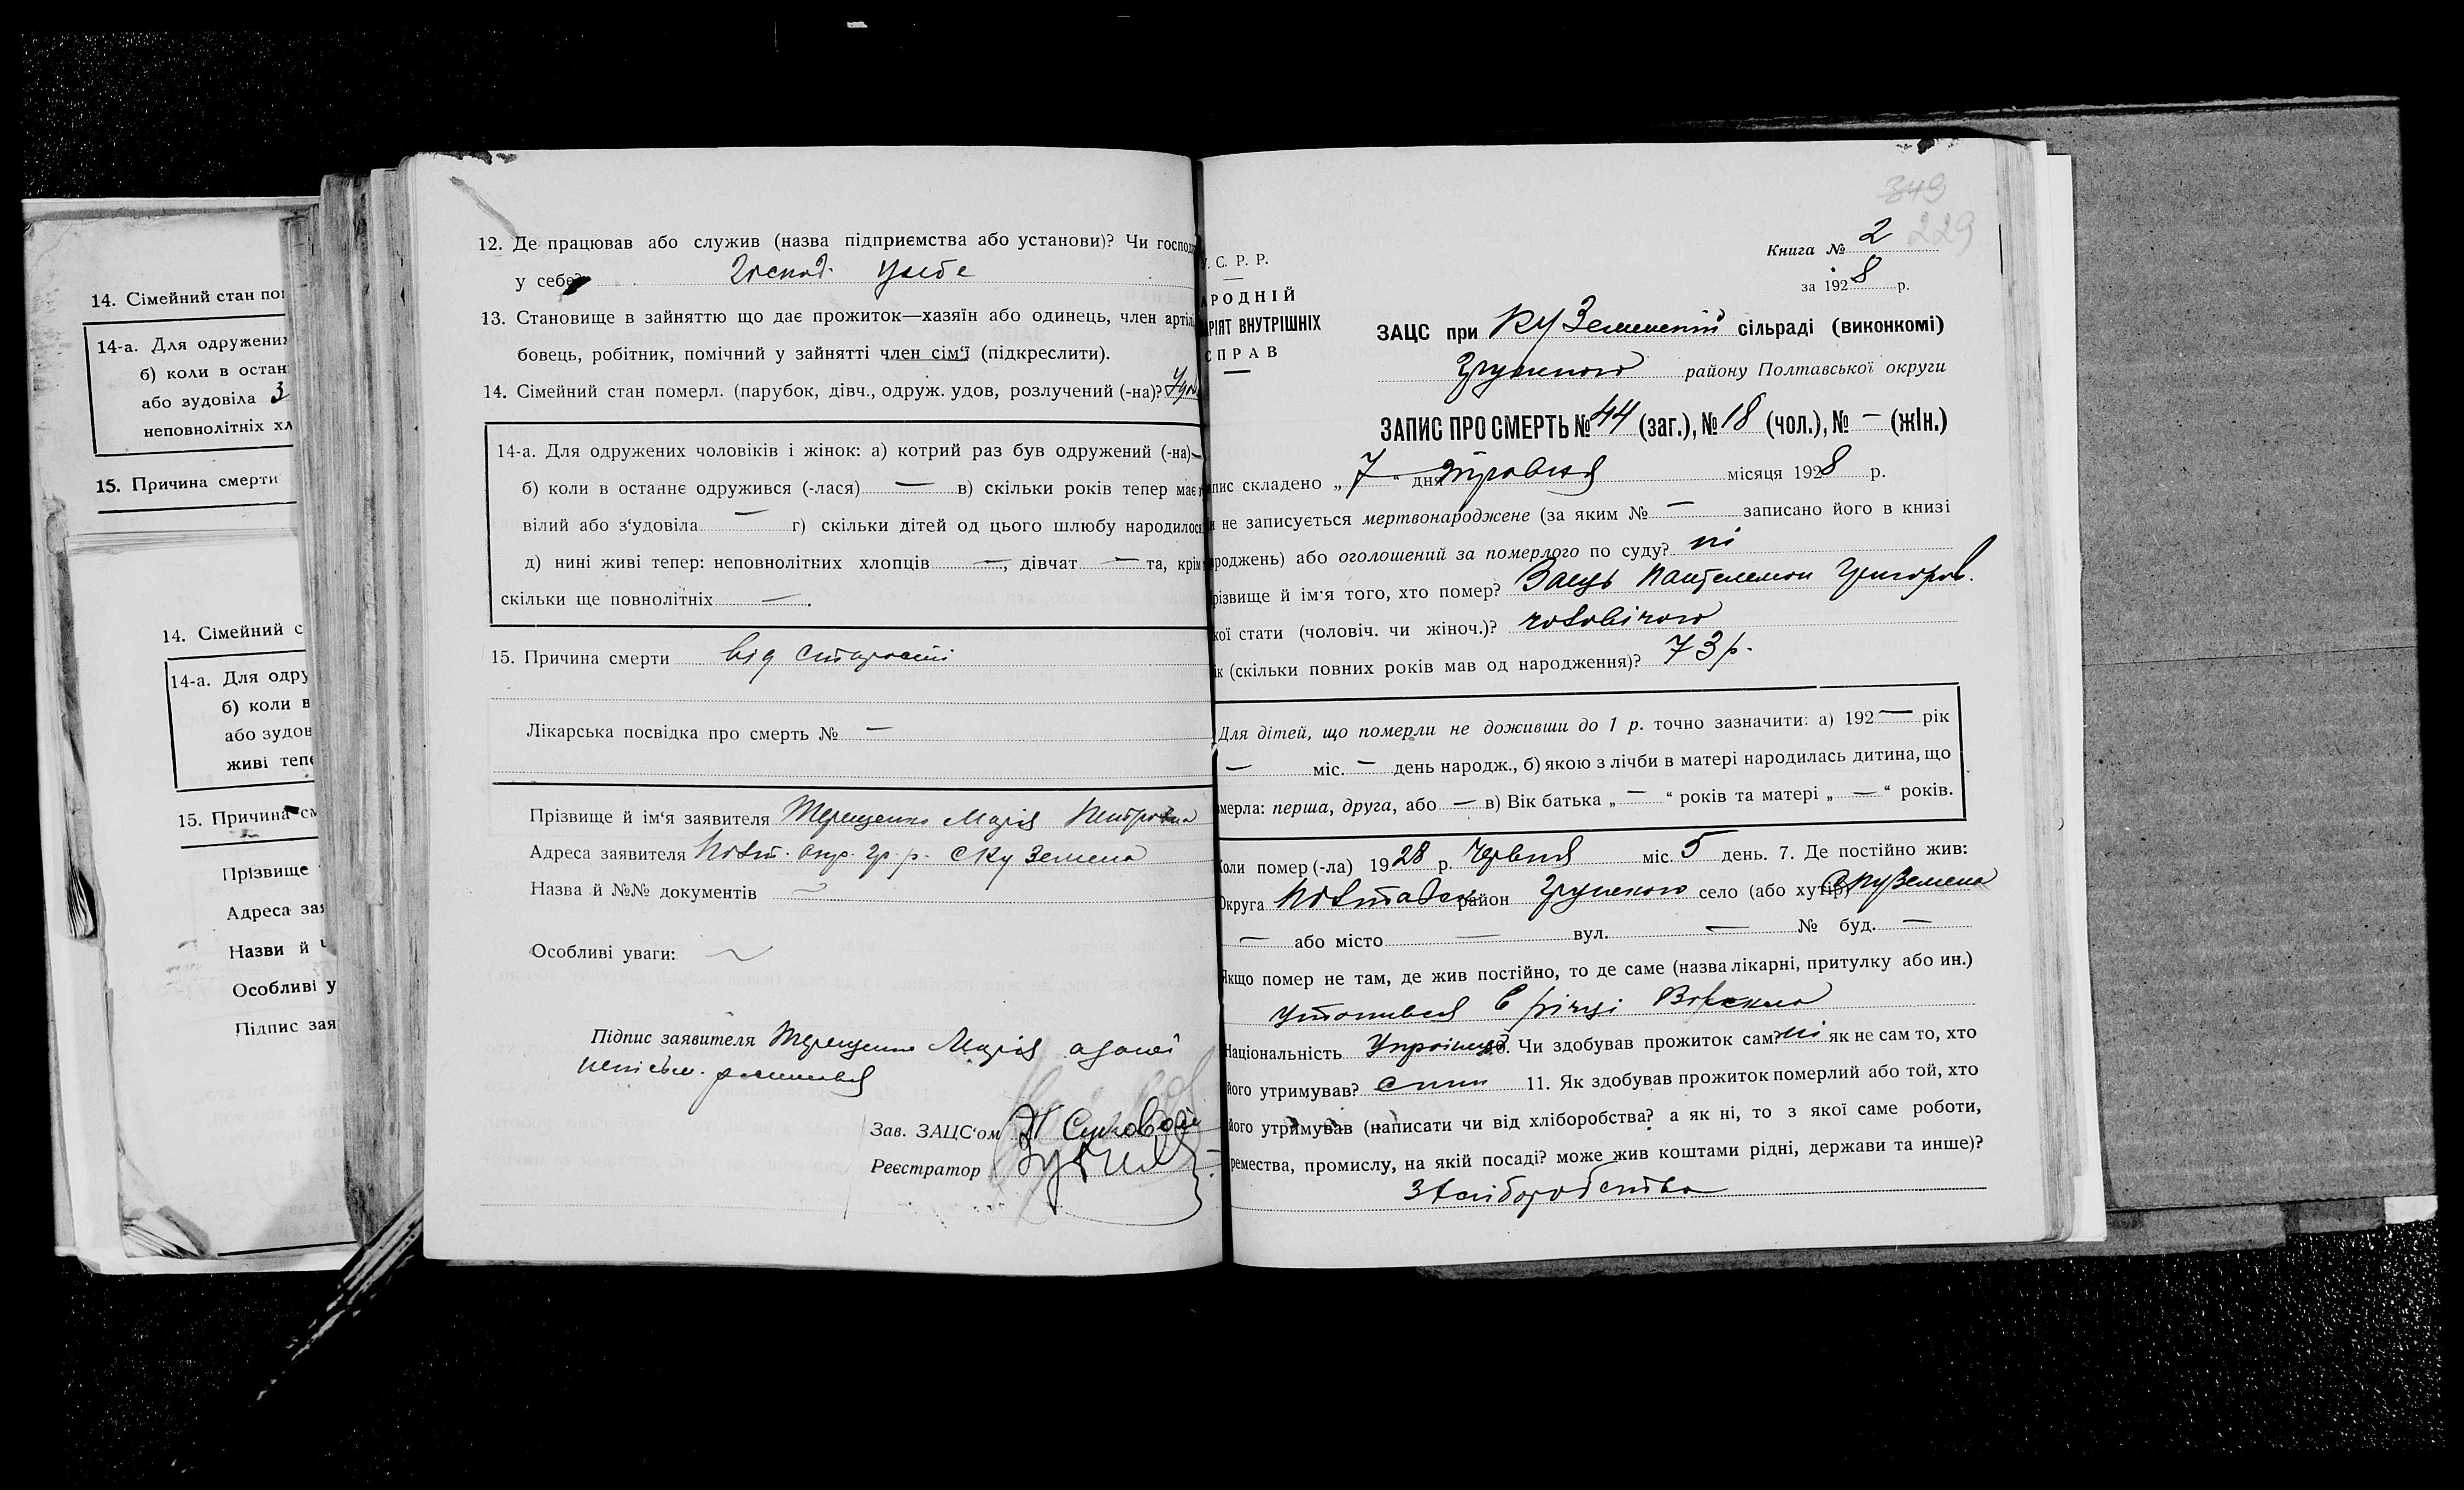 14. Сімейний стан по
14-а. Для одружени
б) коли в остан
або зудовіла 3
неповнолітніх хл
15. Причина смерти
14. Сімейний с
14-а. Для одру
б) коли в
або зудов
живі тепе
15. Причина см
Прізвище
Адреса зая
Назви й ч
Особливі у
Підпис зая
12. Де працював або служив (назва підприємства або установи)? Чи господ
у себе? Господ. у себе
13. Становище в зайняттю що дає прожиток—хазяїн або одинець, член артіл
бовець, робітник, помічний у зайнятті член сім'ї (підкреслити).
14. Сімейний стан померл. (парубок, дівч., одруж. удов, розлучений (-на)? Удов
14-а. Для одружених чоловіків і жінок: а) котрий раз був одружений (-на) —
б) коли в останнє одружився (-лася) — в) скільки років тепер має
вілий або з'удовіла — г) скільки дітей од цього шлюбу народилос
д) нині живі тепер: неповнолітних хлопців —, дівчат — та, крім
скільки ще повнолітніх —.
15. Причина смерти від старости
Лікарська посвідка про смерть № —
Прізвище й ім'я заявителя Терещенко Марія Петровна
Адреса заявителя Полт. окр. Гр. р. С Куземено
Назва й №№ документів —
Особливі уваги:
Підпис заявителя Терещенко Марія а за неї
неписьм. росписався
Зав. ЗАЦС'ом
Реєстратор
349
229
Книга № 2
за 1928 р.
У. С. Р. Р.
АРОДНІЙ
АРІЯТ ВНУТРІШНІХ
СПРАВ
ЗАЦС при Куземенській сільраді (виконкомі)
Грунського району Полтавської округи
ЗАПИС ПРО СМЕРТЬ № 44 (заг.), № 18 (чол.), № — (жін.)
пис складено „7" дня травня місяця 1928 р.
и не записується мертвонароджене (за яким № — записано його в книзі
роджень) або оголошений за померлого по суду? ні
різвище й ім'я того, хто помер? Заєць Пантелемон Григоров.
кої стати (чоловіч. чи жіноч.)? чоловічого
ік (скільки повних років мав од народження)? 73 р.
Для дітей, що померли не доживши до 1 р. точно зазначити: а) 192— рік
— міс. — день народж., б) якою з лічби в матері народилась дитина, що
мерла: перша, друга, або — в) Вік батька „—" років та матері „—" років.
Коли помер (-ла) 1928 р. Червня міс. 5 день. 7. Де постійно жив:
Округа Полтавск район Грунського село (або хутір) С Куземено
— або місто — вул. — № буд. —
Якщо помер не там, де жив постійно, то де саме (назва лікарні, притулку або ин.)
утопився в річці Ворскло
Національність Українець 10. Чи здобував прожиток сам? ні як не сам то, хто
його утримував? син 11. Як здобував прожиток померлий або той, хто
його утримував (написати чи від хліборобства? а як ні, то з якої саме роботи,
ремества, промислу, на якій посаді? може жив коштами рідні, держави та инше)?
З хліборобства